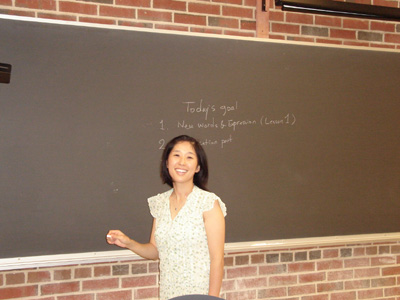 Today's goal
1 New Words & Expression (Lesson 1)
2 part